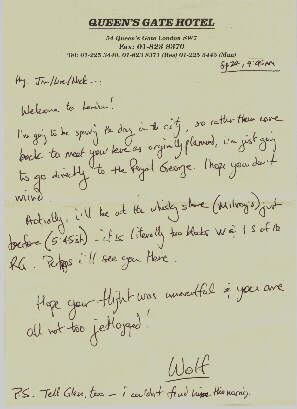 QUEEN'S GATE HOTEL
54 Queen's Gate London SW7
Fax: 01-823 8370
Tel: 01-225 3440, 01-823 8371 (Res) 01-225 3449 (Man)
9:45am
Jim/Lee/Nick...
Welcome to London!
I'm going to be spending the day in the city, so rather than come
back to meet you here as originally planned, i'm just going
to go directly to the Royal George. I hope you don't
mind.
Actually, i'll be at the whisky store (Milroy's) just
before (5:45ish) - it is literally two blocks W & 1 S of the
RG. Perhaps i'll see you there.
Hope your flight was uneventful & you are
all not too jetlagged!
Wolf
P.S. Tell Glen, too - i couldn't find him this morning.